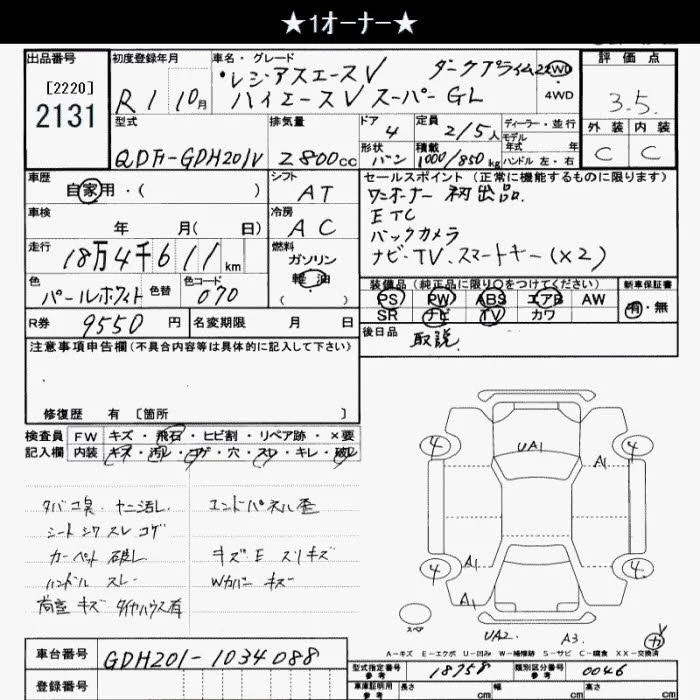 ★1オーナー★
出品番号
[2220]
2131
初度登録年月
R 1 10月
車名・グレード
レジアスエースV ダークプライム 2WD
ハイエースV スーパーGL 4WD
評価点
3.5
外装 内装
C C
型式
QDF-GDH201V
排気量
2800cc
ドア
4
定員
2/5人
ディーラー・並行
モデル
年式 年
形状
バン
積載
1000/850kg
ハンドル 左・右
車歴
自家用・( )
シフト
AT
車検
年 月(日)
冷房
AC
走行
18万4千611km
燃料
ガソリン
軽油
( )
色
パールホワイト
色替
色コード
070
R券
9550円
名変期限 月 日
セールスポイント(正常に機能するものに限ります)
ワンオーナー 初出品.
ETC
バックカメラ
ナビ・TV、スマートキー(×2)
装備品(純正品に限り○をつけてください)
PS PW ABS エアB AW
SR ナビ TV カワ
新車保証書
有・無
後日品
取説.
注意事項申告欄(不具合内容等は具体的に記入して下さい)
修復歴 有 [箇所 ]
検査員
記入欄
FW キズ・飛石・ヒビ割・リペア跡・×要
内装 キズ・汚レ・コゲ・穴・スレ・キレ・破レ
タバコ臭 ヤニ汚レ
シート シワ スレ コゲ
カーペット 破レ
ハンドル スレ
荷室 キズ タイヤハウス有
エンドパネル歪
キズE スリキズ
Wカバー キズ
4 4
UA1
A1
4 4
A1
A1
スペア
UA2. A3.
A-キズ E-エクボ U-凹み W-補修跡 S-サビ C-腐食 XX-交換済
車台番号
GDH201-1034088
登録番号
型式指定番号
参考
18758
類別区分番号
参考
0046
車庫証明用
参考
長さ cm 幅 cm 高さ cm